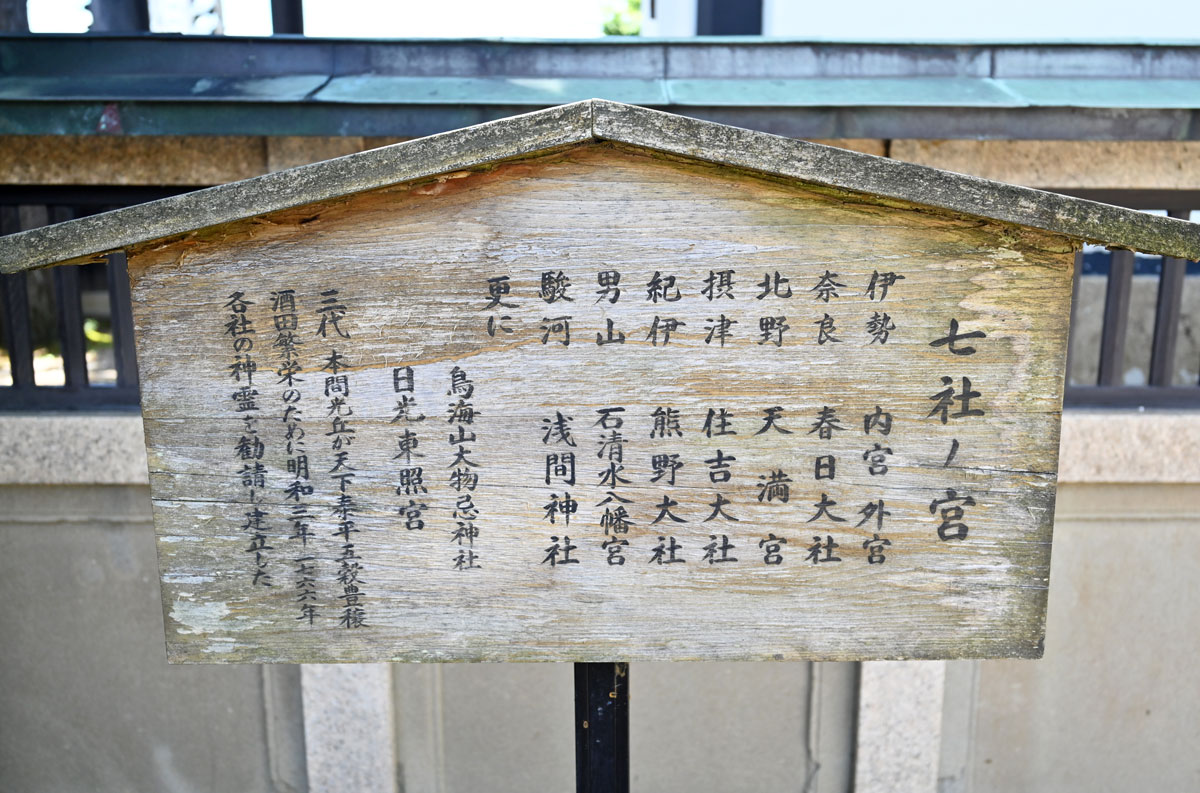 七社ノ宮
伊勢 内宮 外宮
奈良 春日大社
北野 天満宮
摂津 住吉大社
紀伊 熊野大社
男山 石清水八幡宮
駿河 浅間神社
更に
鳥海山大物忌神社
日光東照宮
三代 本間光丘が天下泰平五穀豊穣
酒田繁栄のために明和三年 一七六六年
各社の神霊を勧請し建立した